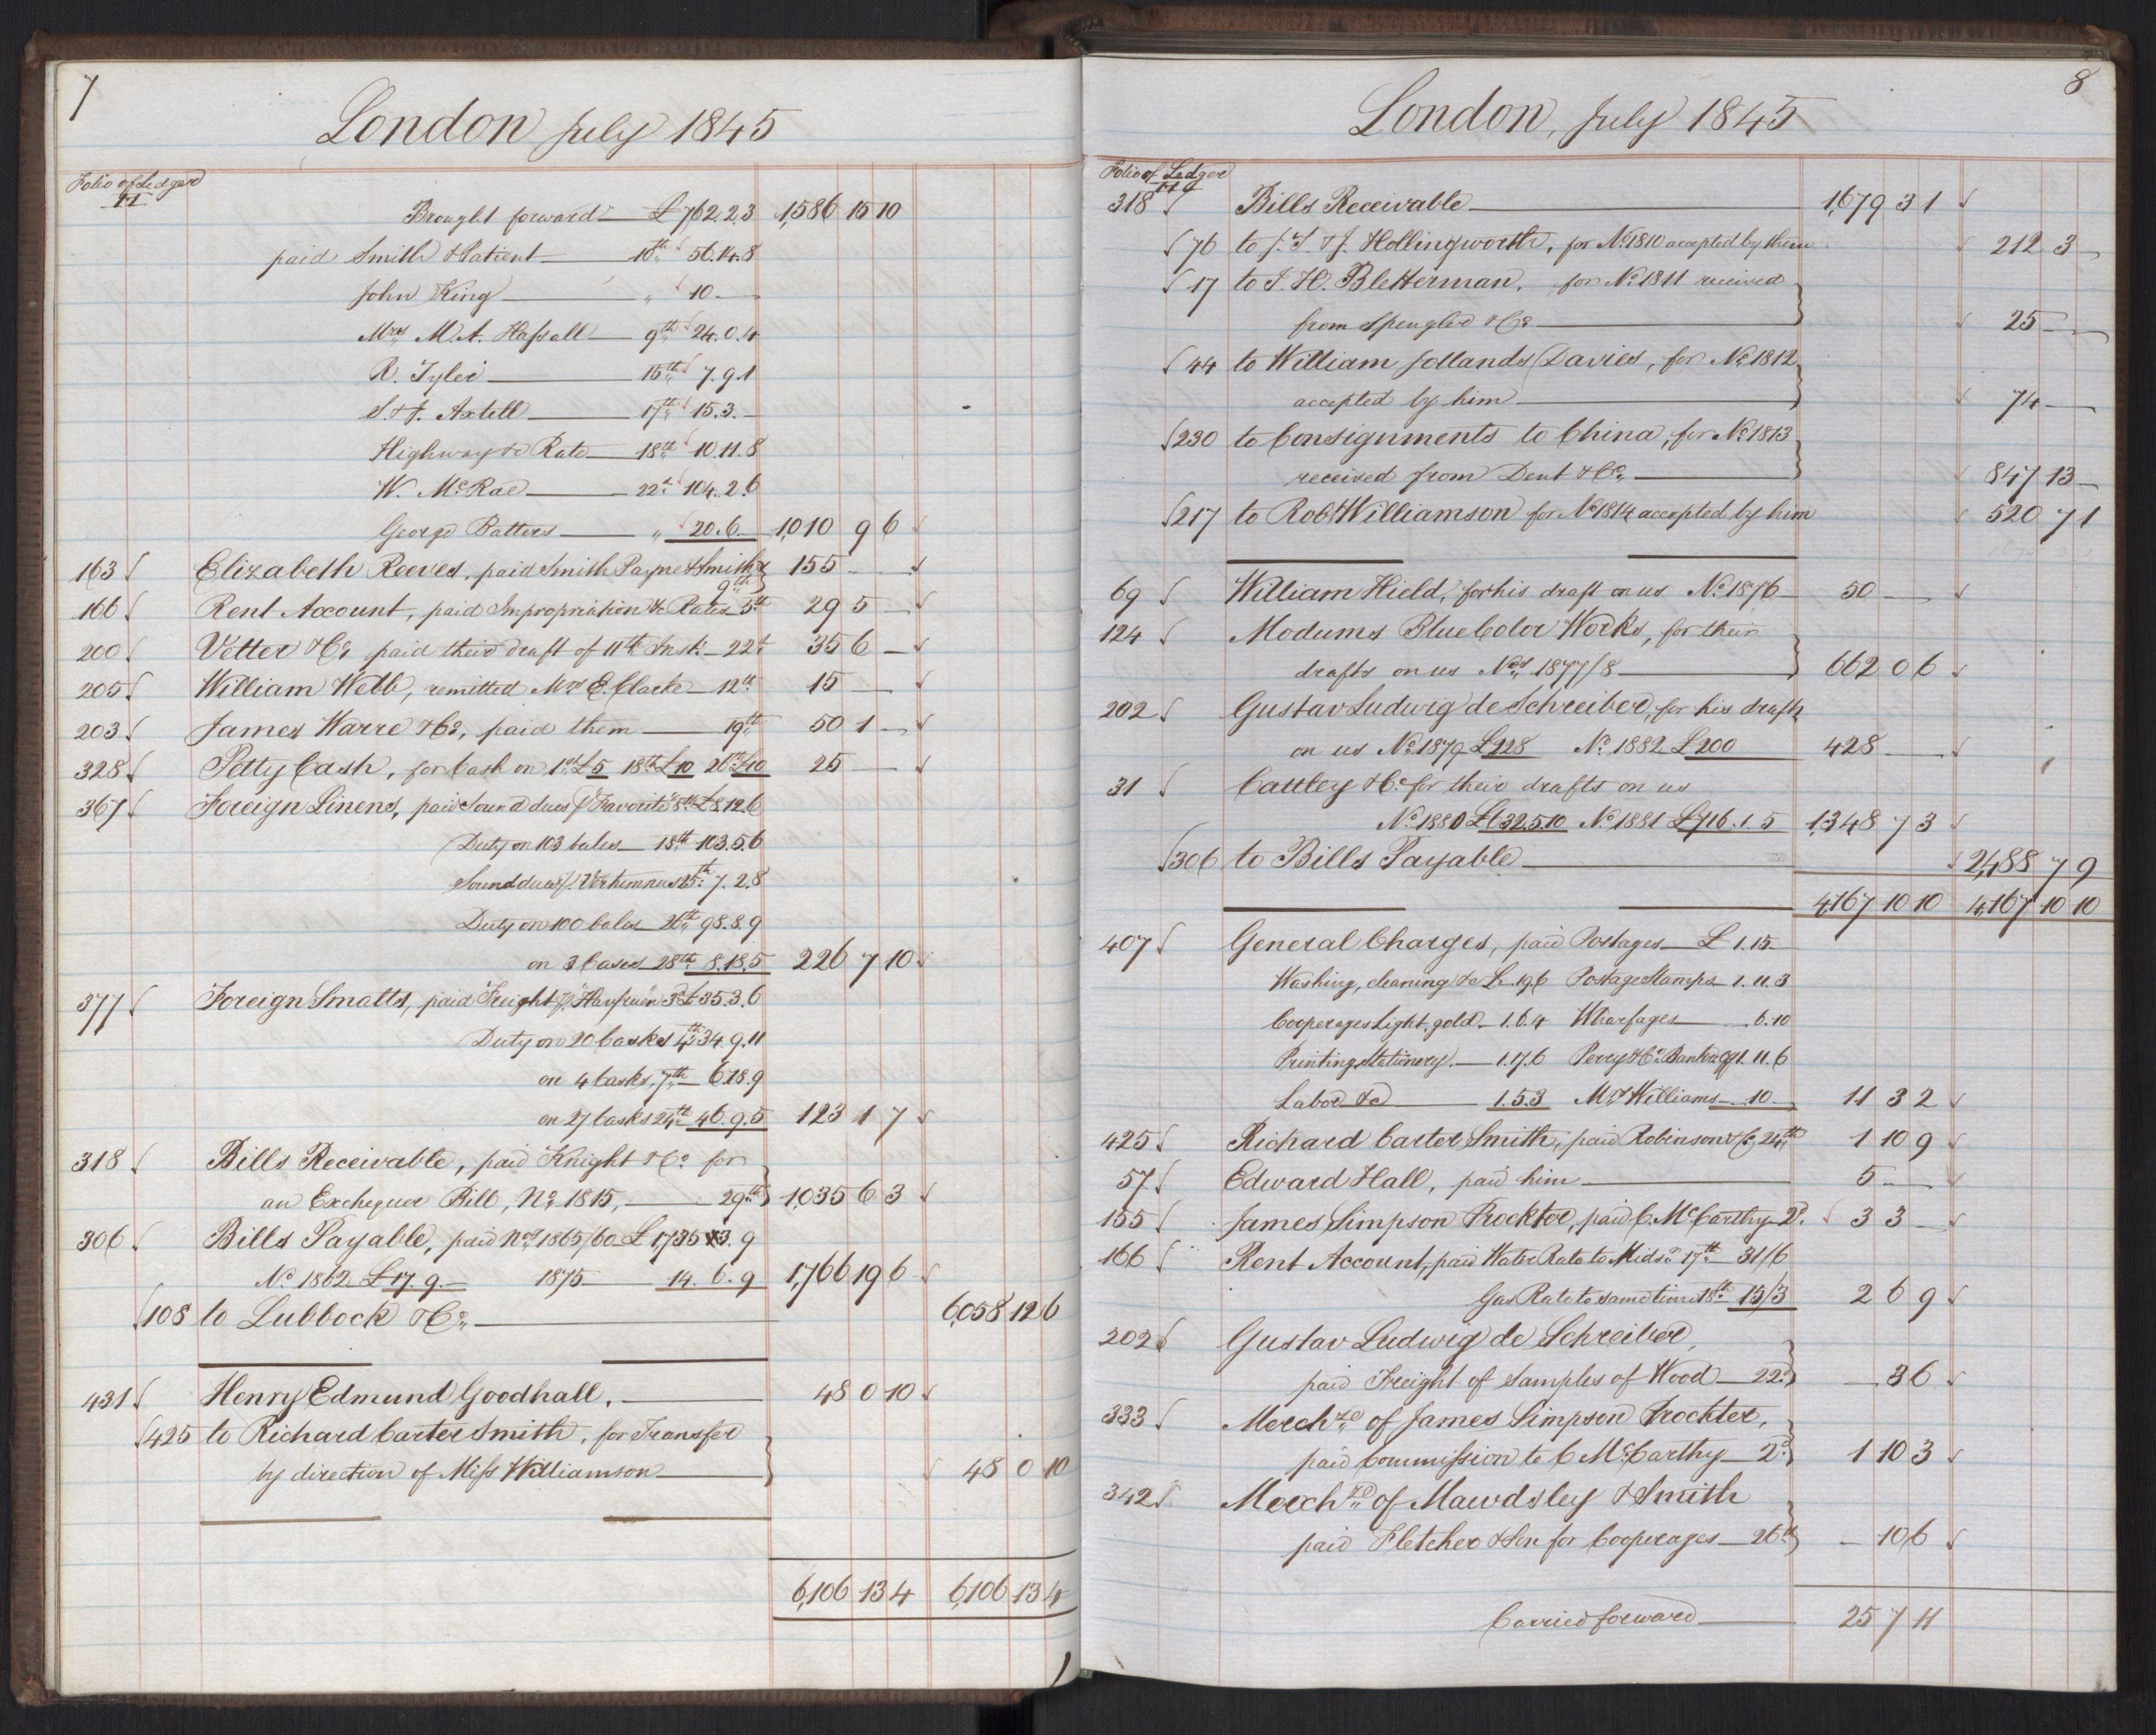 7
London July 1845
Folio of Ledger
Brought forward £762.2.3 1,586 15 10
paid Smith & Patient 10th 56.14.8
John King " 10.
Mrs M. A. Hassall 9th 24.0.4
R. Tyler 15th 7.9.1
S. & J. Axtell 17th 15.3.
Highway &c Rate 18th 10.11.8
W. McRae 22d 104.2.6
George Batters " 20.6. 1,010 9 6
163 Elizabeth Reeves, paid Smith Payne & Smiths 9th 155
166 Rent Account, paid Impropriation &c Rates 5th 29 5
200 Vetter & Co paid their draft of 11th Inst. 22d 35 6
205 William Webb, remitted Mrs E. Clarke 12th 15
203 James Warre & Co, paid them 19th 50 1
328 Petty Cash, for Cash on 1st £5 18th £10 26th £10 25
367 Foreign Linens, paid Sound dues p "Favorite" 8th £8.12.6
Duty on 103 bales 18th 103.5.6
Sound dues p Vertumnus 25th 7.2.8
Duty on 100 bales 26th 98.8.9
on 3 Cases 28th 8.18.5 226 7 10
377 Foreign Smalts, paid Freight p 3d £35.3.6
Duty on 20 Casks 4th 34.9.11
on 4 Casks, 7th 6.18.9
on 27 Casks 24th 46.9.5 123 1 7
318 Bills Receivable, paid Knight & Co for
an Exchequer Bill, No 1815, 29th 1,035 6 3
306 Bills Payable, paid Nos 1865/60 £1,735.3.9
No 1862 £17.9. 1875 14.6.9 1,766 19 6
108 to Lubbock & Co 6,058 12 6
431 Henry Edmund Goodhall, 48 0 10
425 to Richard Carter Smith, for Transfer
by direction of Miss Williamson 48 0 10
6,106 13 4 6,106 13 4
8
London, July 1845
Folio of Ledger
318 Bills Receivable 1,679 3 1
76 to J. T. & J. Hollingworth, for No 1810 accepted by them 212 3
17 to J. H. Bletterman, for No 1811 received
from Spengler & Co 25
44 to William Jollands Davies, for No 1812
accepted by him 74
230 to Consignments to China, for No 1813
received from Dent & Co, 847 13
217 to Robt Williamson for No 1814 accepted by him 520 7 1
69 William Hield, for his draft on us No 1876 50
124 Modums Blue Color Works, for their
drafts on us Nos 1877/8 662 0 6
202 Gustav Ludwig de Schreiber, for his drafts
on us No 1879 £228 No 1882 £200 428
31 Cattley & Co for their drafts on us
No 1880 £632.5.10 No 1881 £716.1.5 1,348 7 3
306 to Bills Payable 2,488 7 9
4,167 10 10 4,167 10 10
407 General Charges, paid Postages £1.15
Washing, cleaning &c £1.19.6 Postage Stamps 1.11.3
Cooperages Light, gold 1.6.4 Wharfages 6.10
Printing, Stationery 1.17.6 Perry & Co 1.11.6
Labor &c 1.5.3 Mr Williams 10 11 3 2
425 Richard Carter Smith, paid Robinson & Co 24th 1 10 9
57 Edward Hall, paid him 5
155 James Simpson Prockter, paid C. McCarthy 2d. 3 3
166 Rent Account, paid Water Rate to Midsr 17th 31/6
Gas Rate to same time 18th 15/3 2 6 9
202 Gustav Ludwig de Schreiber,
paid Freight of Samples of Wood 22d 3 6
333 Merchze of James Simpson Prockter,
paid Commission to C McCarthy 2d 1 10 3
342 Merchze of Mawdsley & Smith
paid Fletcher & Son for Cooperages 26th 10 6
Carried forward 25 7 11